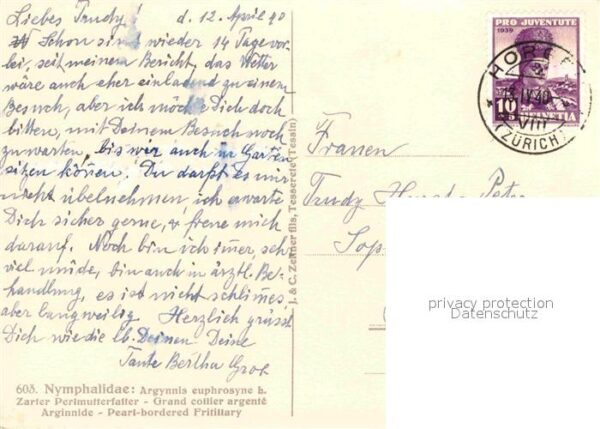 Liebes Trudy! d. 12. April 40
Schon sind wieder 14 Tage vor-
bei, seit meinem Bericht, das Wetter
wäre auch eher einladend zu einem
Besuch, aber ich möchte Dich doch
bitten, mit Deinem Besuch noch
zu warten, bis wir auch im Garten
sitzen können. Du darfst es mir
nicht übelnehmen ich warte
Dich sicher gerne, u freue mich
darauf. Noch bin ich imer, seh
viel müde, bin auch in ärztl. Be-
handlung, es ist nicht schlimes,
aber langweilig. Herzlich grüsst
Dich wie die lb. Deinen Deine
Tante Bertha Grok
603. Nymphalidae: Argynnis euphrosyne L.
Zarter Perlmutterfalter - Grand collier argenté
Arginnide - Pearl-bordered Fritillary
J. & C. Zellner fils, Tesserete (Tessin)
PRO JUVENTUTE
1939
10
HELVETIA
HORGEN
13.IV.40
VIII
(ZÜRICH)
Frauen
Trudy Peter
privacy protection
Datenschutz